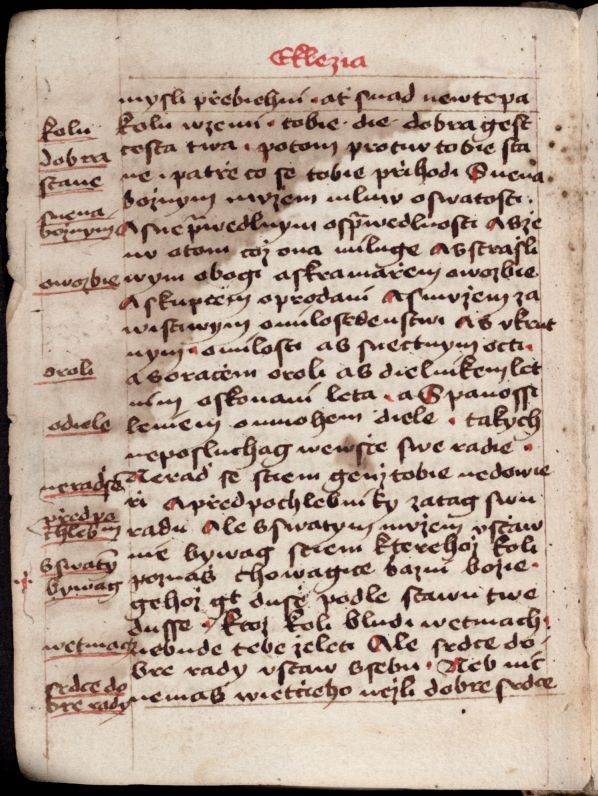 Ekklezia
mysli přebiehni · ať snad newtepa
kolu wzemi · tobie · die · dobra gest
cesta twa · potom protiw tobie sta
ne · patře co se tobie přihodi S nena
božnym mužem mluw o swatosti ·
A s ne p̄wedlnym o sp̄wedlnosti A s že
nu o tom coz ona miluge A s strašli
wym o bogi a s kramařem o wozbie ·
A s kupcem o prodani A s mužem za
wistiwym o milosrdenstwi A s vkrut
nym · o milosti a s nectnym o cti ·
a s oračem o roli a s dielnikem let
nim o skonani leta · a S panossi
leniem o mnohem diele · takych
neposluchag wewšie swe radie ·
Nerad se s tiem genž tobie nedowie
ři A před pochlebniky zatag swu
radu Ale s swatym mužem vstaw
nie bywag s tiem kterehož koli
poznaš chowagice bazni božie ·
gehož gt duše podle stawu twe
dusse · ktož koli bludi wetmach ·
nebude tebe želeti Ale srdce do
bre rady vstaw s sebu · Neb nic
nemaš wietčieho nežli dobre srdce
kolu
dobra
stane
s nena
božnym
o wozbie
o roli
o diele
nerad se
před po
chlebni
s swaty
bywag
wetmach
srdce do
bre rady